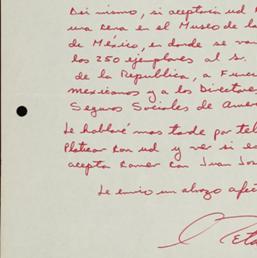 Así mismo, si aceptaría ud
una cena en el Museo de la
de México, en donde se va
los 250 ejemplares al S.
de la Republica, a Func
mexicanos y a los Directore
Seguros Sociales de Amer
Le hablaré mas tarde por tel
Platicar con ud y ver si e
acepta comer con Juan Jos
Le envio un abrazo afec